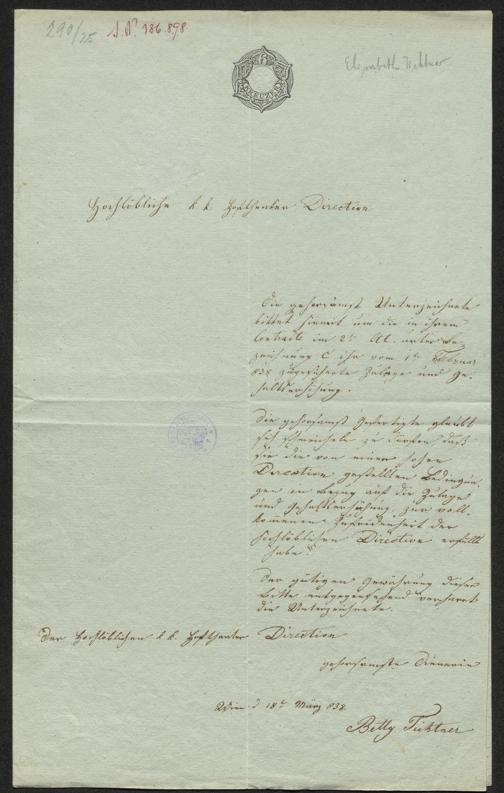 290/25 I.N. 186.898
Elisabeth Fichtner
6
KREUZER
Hochlöbliche k. k. Hoftheater Direction
Die gehorsamst Unterzeichnete
bittet hiermit um die in ihrem
Contracte im 2t. Abs. unter Be-
zeichnung C ihr vom 1t. Februar
838 zugesicherte Zulage und Ge-
haltserhöhung.
Die gehorsamst Gefertigte glaubt
sich schmeicheln zu dürfen, daß
sie die von einer hohen
Direction gestellten Bedingun-
gen in Bezug auf die Zulage
und Gehaltserhöhung zur voll-
kommenen Zufriedenheit der
Hochlöblichen Direction erfüllt
habe.
Der gütigen Gewährung dieser
Bitte entgegensehend verharrt
die Unterzeichnete.
Der Hochlöblichen k. k. Hoftheater Direction
gehorsamste Dienerin
Wien d. 18t. März 838.
Betty Fichtner